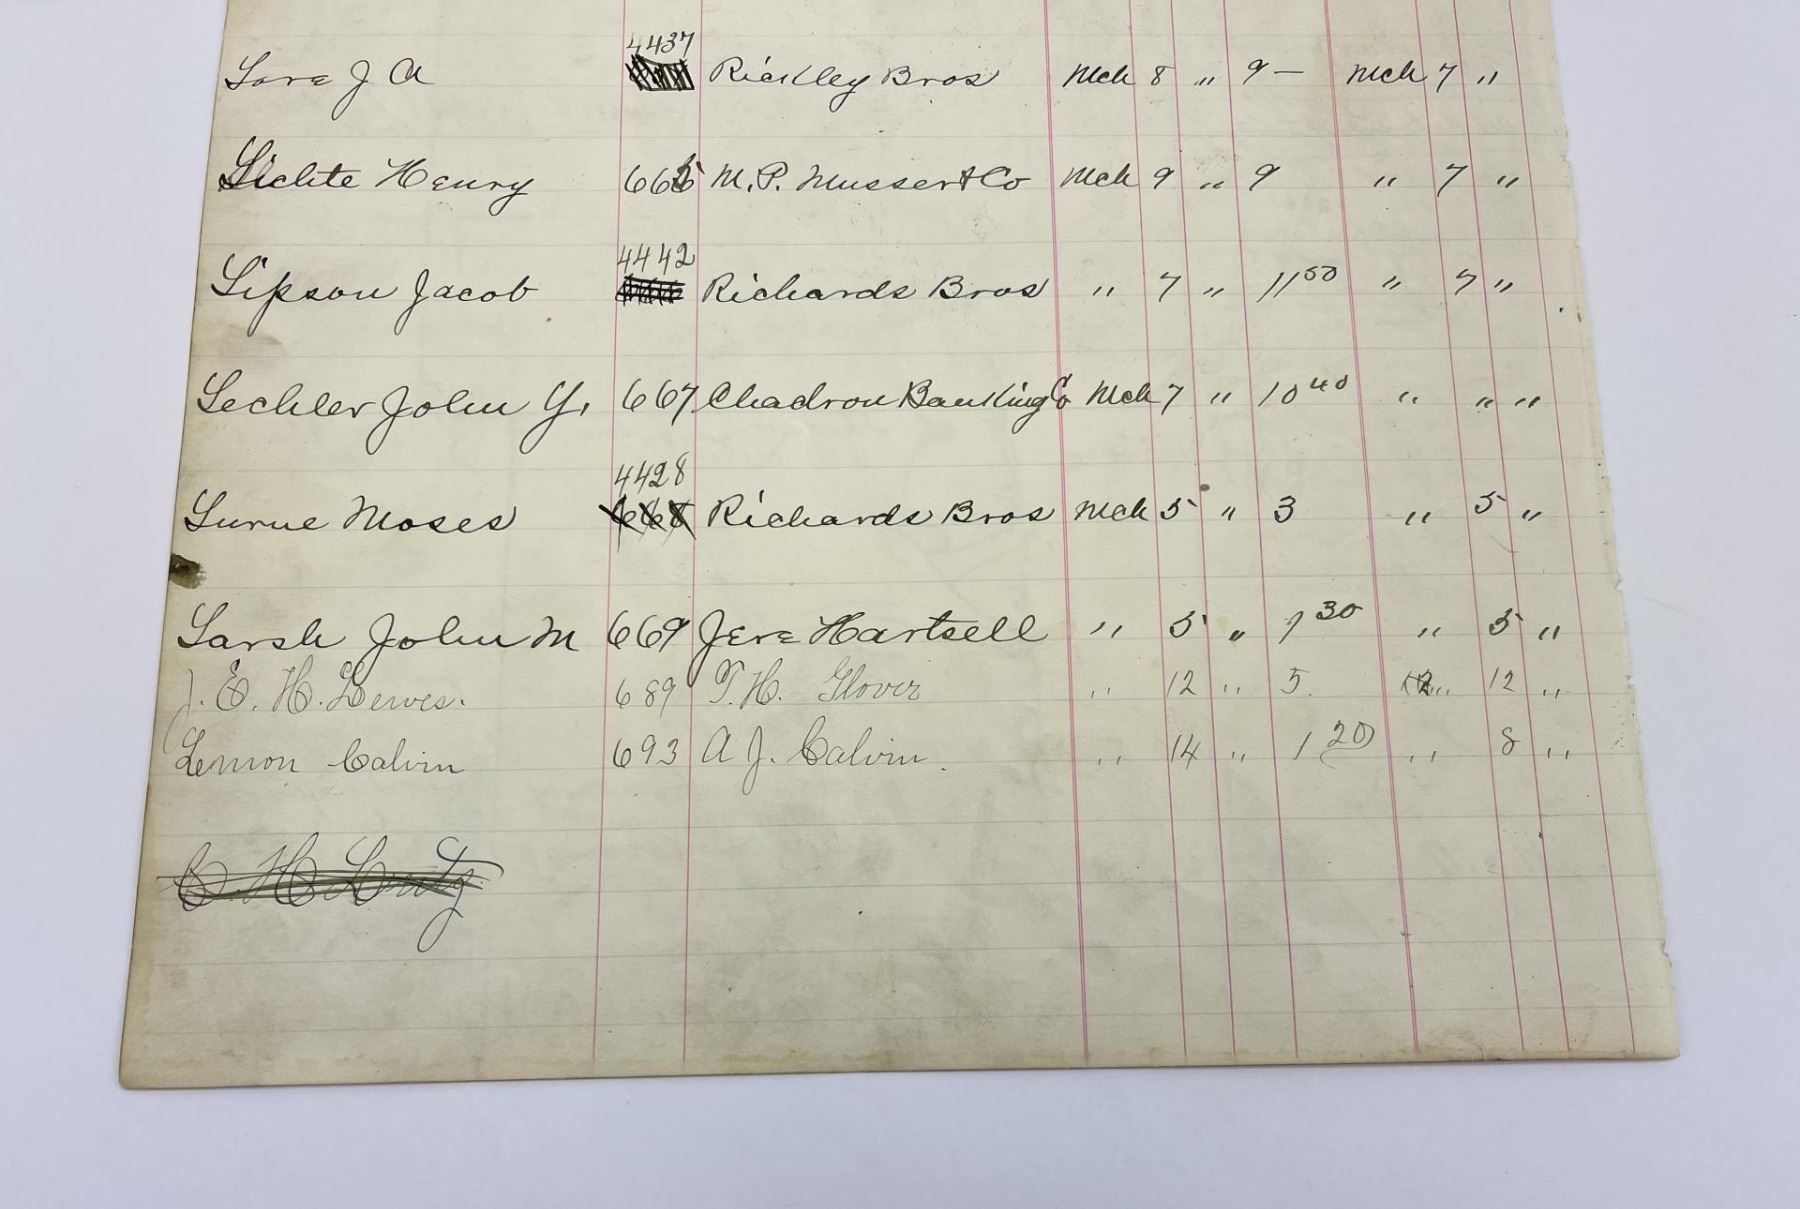 4437
Love J A Rickley Bros Mch 8 " 9 — Mch 7 "
Lichte Henry 665 M. P. Musser & Co Mch 9 " 9 " 7 "
4442
Lipson Jacob Richards Bros " 7 " 11 50 " 7 "
Lechler John Y. 667 Chadron Banking Co Mch 7 " 10 40 " " "
4428
Moses 668 Richards Bros Mch 5 " 3 " 5 "
Larsh John M 669 Jere Hartsell " 5 " 7 30 " 5 "
J. E. H. Lewes. 689 T. H. Glover " 12 " 5. " 12 "
Lemon Calvin 693 A J. Calvin. " 14 " 1 20 " 8 "
C. H. Lentz